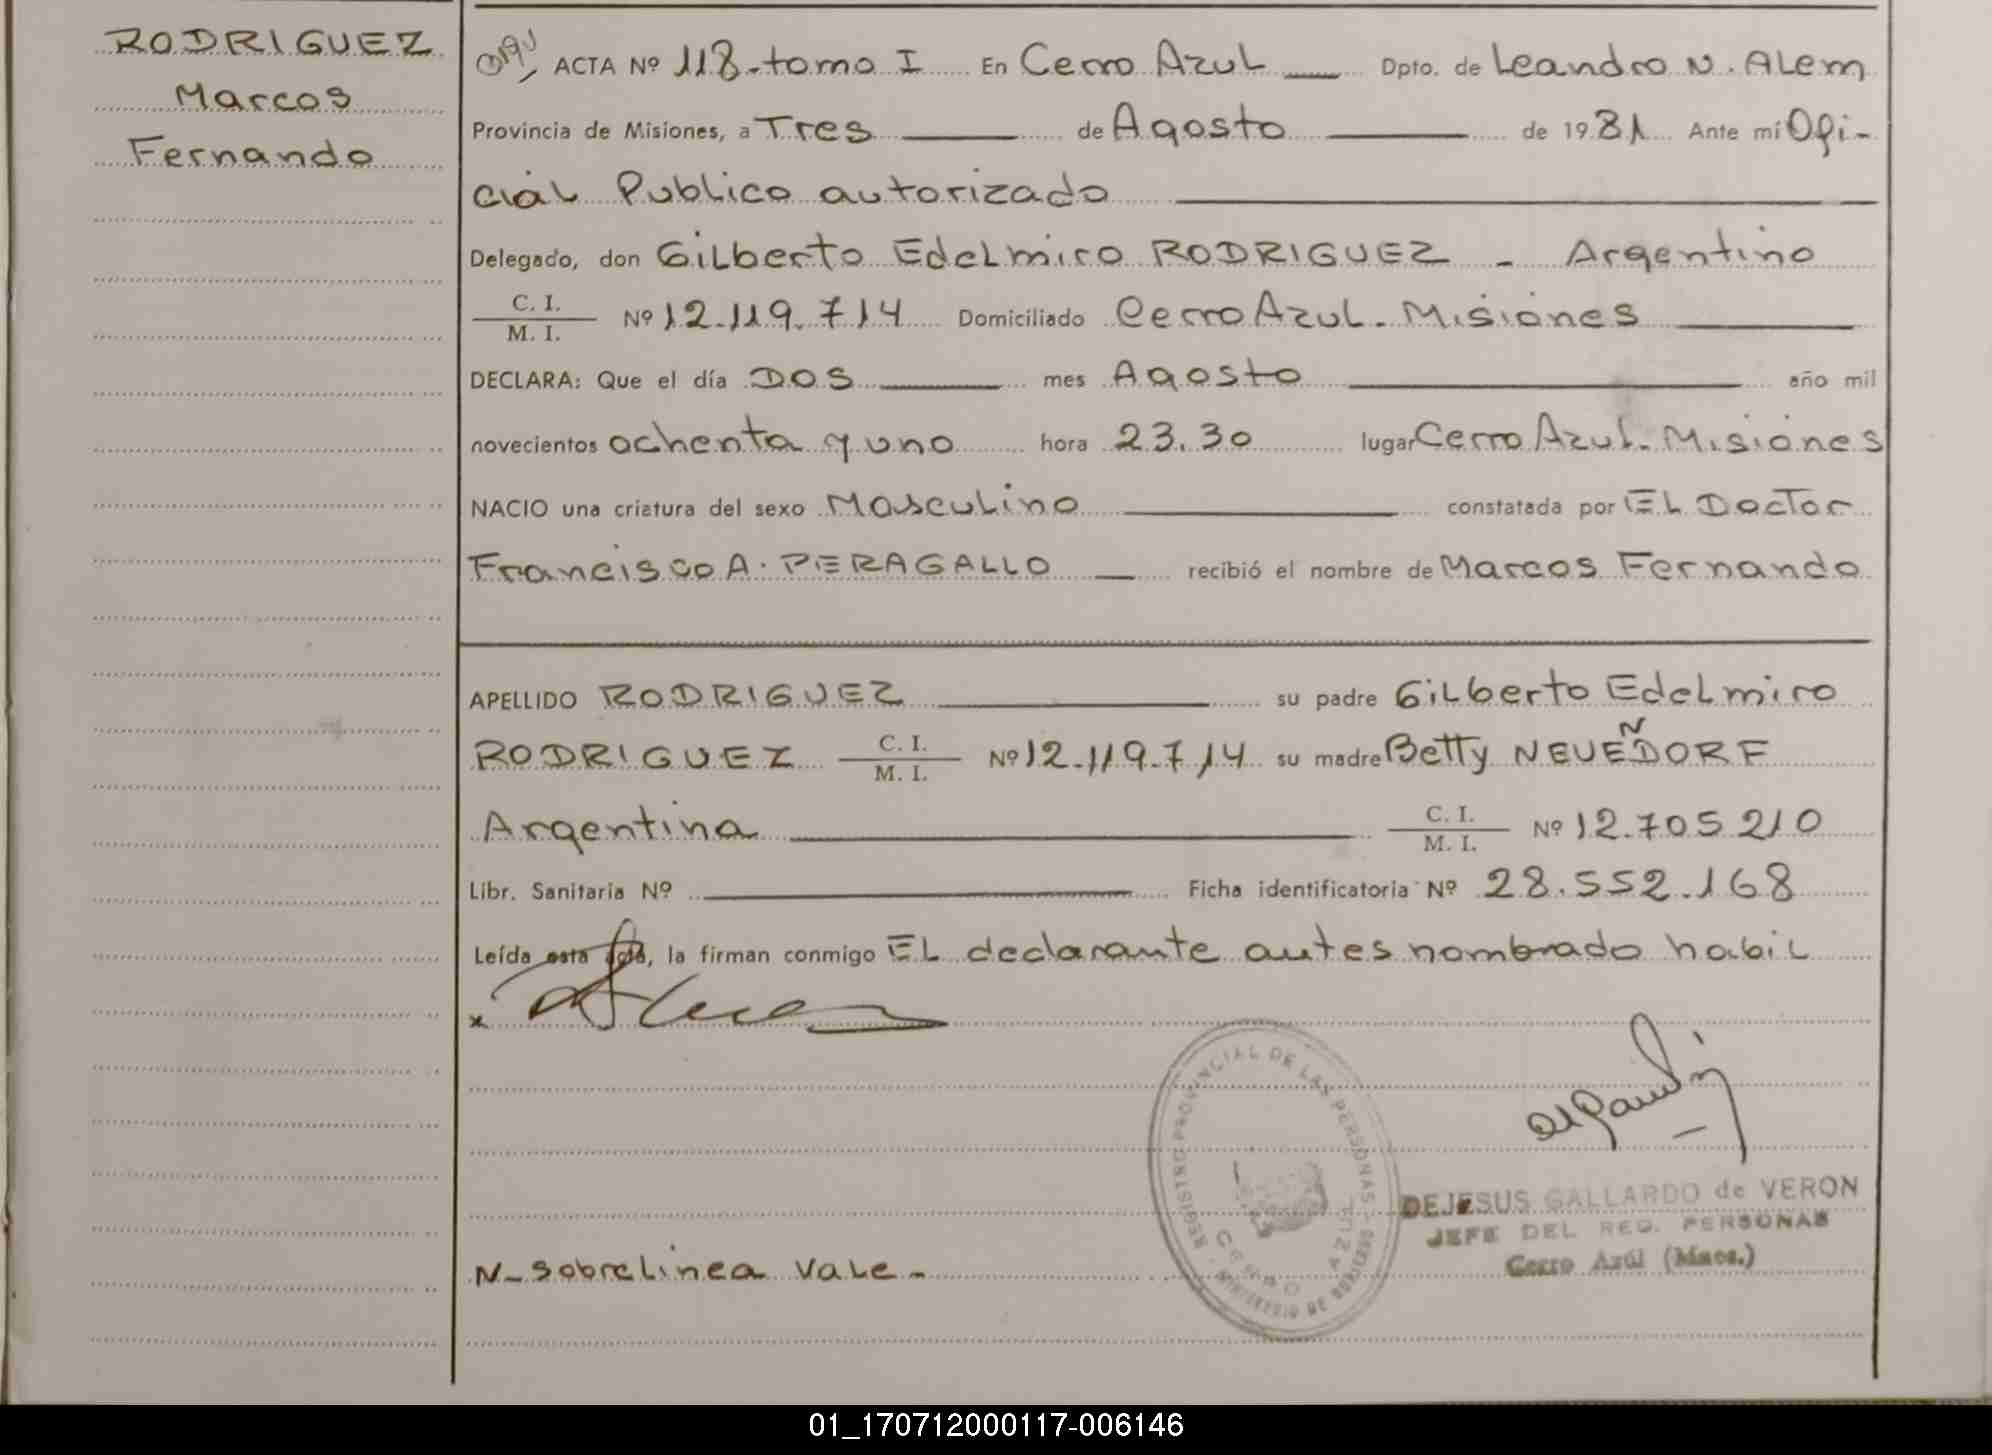 RODRIGUEZ
Marcos
Fernando
ACTA Nº 118-tomo I En Cerro Azul Dpto. de Leandro N. Alem
Provincia de Misiones, a Tres de Agosto de 1981 Ante mí Ofi-
cial Publico autorizado
Delegado, don Gilberto Edelmiro RODRIGUEZ - Argentino
C. I.
M. I. Nº 12.119.714 Domiciliado Cerro Azul-Misiones
DECLARA: Que el día DOS mes Agosto año mil
novecientos ochenta y uno hora 23.30 lugar Cerro Azul-Misiones
NACIO una criatura del sexo Masculino constatada por EL Doctor
Francisco A. PERAGALLO recibió el nombre de Marcos Fernando
APELLIDO RODRIGUEZ su padre Gilberto Edelmiro
N
RODRIGUEZ C. I.
M. I. Nº 12.119.714 su madre Betty NEUEDORF
Argentina C. I.
M. I. Nº 12.705.210
Libr. Sanitaria Nº Ficha identificatoria Nº 28.552.168
Leída esta acta, la firman conmigo EL declarante antes nombrado habil
x
REGISTRO PROVINCIAL DE LAS PERSONAS
MINISTERIO DE GOBIERNO
CERRO AZUL
DEJESUS GALLARDO de VERON
JEFE DEL REG. PERSONAS
Cerro Azúl (Mnes.)
N-sobrelinea vale-
01_170712000117-006146